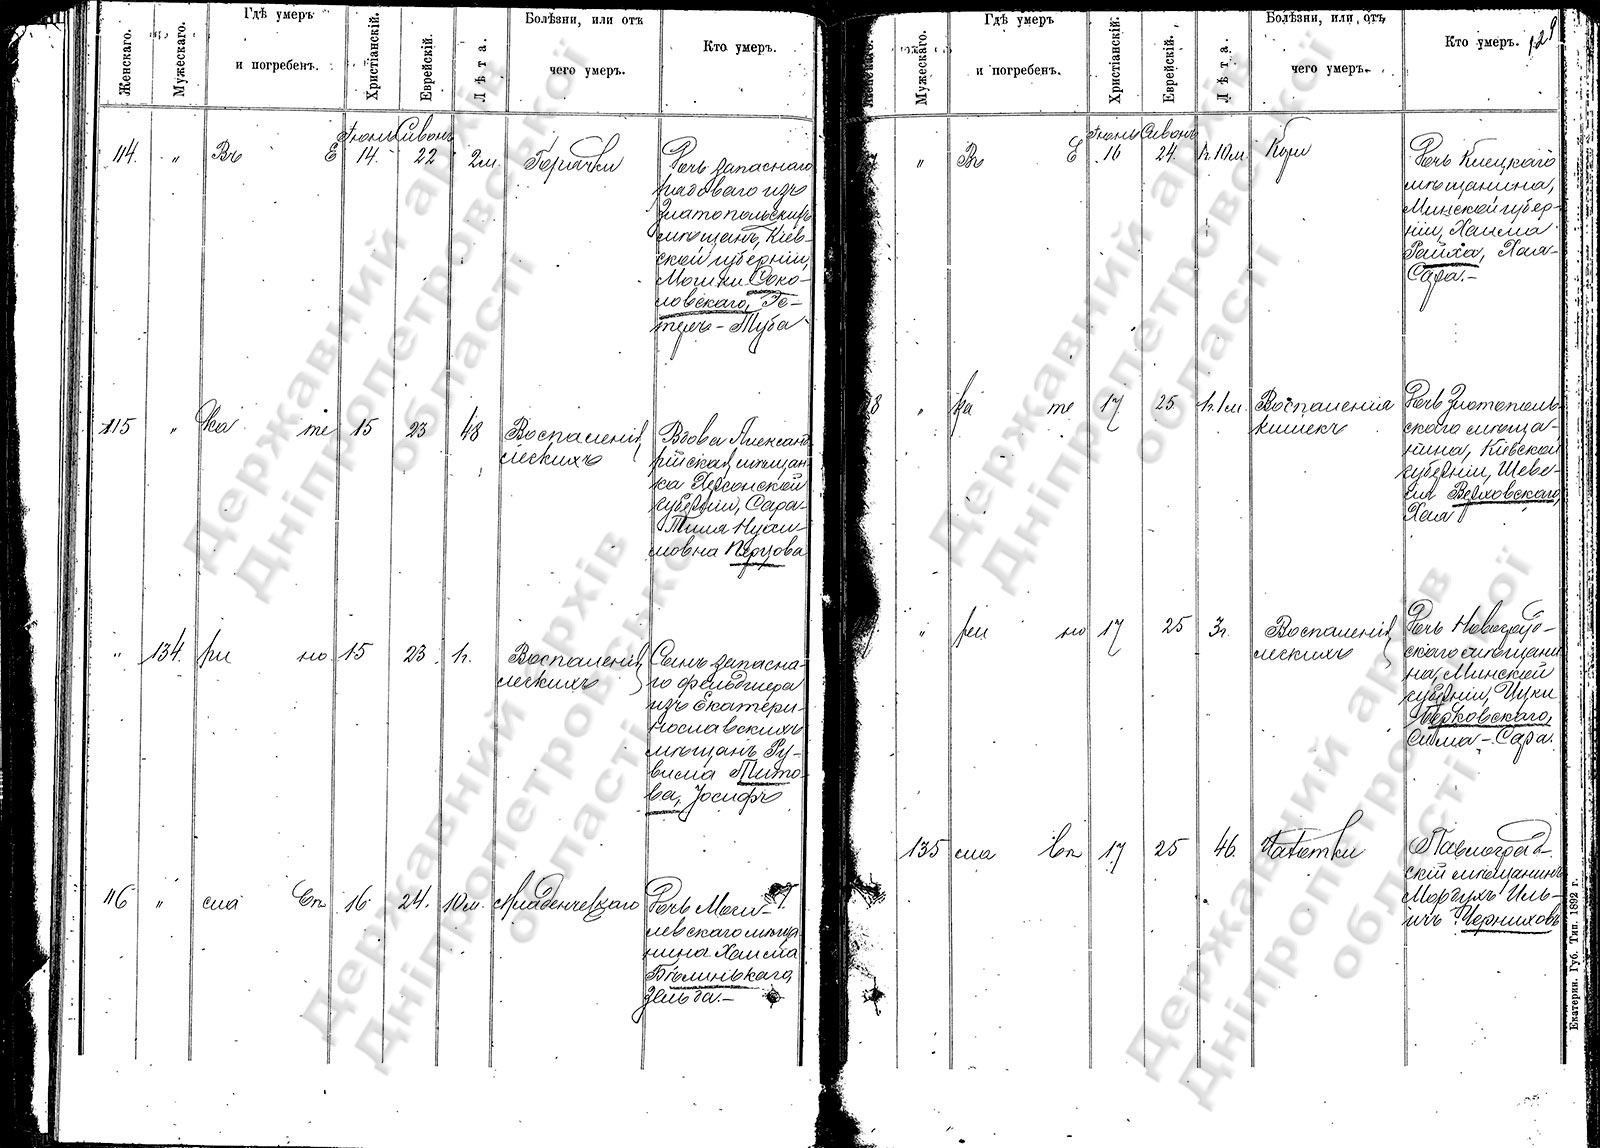 Женскаго.
Мужескаго.
Гдѣ умеръ
и погребенъ.
Христіанскій.
Еврейскій.
Лѣта.
Болѣзни, или отъ
чего умеръ.
Кто умеръ.
Іюнь Сивонъ
114. „ Въ Е 14. 22 2м. Горячки
Дочь запаснаго
рядоваго изъ
Златопольскихъ
мѣщанъ, Кіев-
ской губерніи,
Мошки Соко-
ловскаго, Эс-
теръ-Туба
115 „ ка те 15 23 48 Воспаленія
легкихъ
Вдова Александ-
рійская мѣщан-
ка Херсонской
губерніи, Сара-
Тиля Нухи-
мовна Перцова
„ 134. ри но 15 23. 1г. Воспаленія
легкихъ
Сынъ запасна-
го фельдшера
изъ Екатери-
нославскихъ
мѣщанъ Ру-
вима Пито-
ва, Іосифъ
116 „ сла Еп 16 24. 10м. Младенческаго
Дочь Моги-
левскаго мѣща-
нина Хаима
Бѣлинькаго,
Зельда.-
Женскаго.
Мужескаго.
Гдѣ умеръ
и погребенъ.
Христіанскій.
Еврейскій.
Лѣта.
Болѣзни, или отъ
чего умеръ.
Кто умеръ.
129
Іюнь Сивонъ
„ Въ Е 16 24. 1г.10м. Кори
Дочь Клецкаго
мѣщанина,
Минской губер-
ніи, Хаима
Райха, Хая-
Сара.-
„ ка те 17 25. 1г.1м. Воспаленія
кишекъ
Дочь Златополь-
скаго мѣща-
нина, Кіевской
губерніи, Шеве-
ля Верховскаго,
Хая
„ ри но 17 25 3г. Воспаленія
легкихъ
Дочь Новогруд-
скаго мѣщани
на, Минской
губерніи, Ицки
Берковскаго,
Сима-Сара.
135 сла Еп 17 25 46. Чахотки
Павлоград-
скій мѣщанинъ
Мордухъ Иль-
ичъ Черниховъ
Екатерин. Губ. Тип. 1892 г.
Державний архів
Дніпропетровської
області
Державний архів
Дніпропетровської
області
Державний архів
Дніпропетровської
області
Державний архів
Дніпропетровської
області